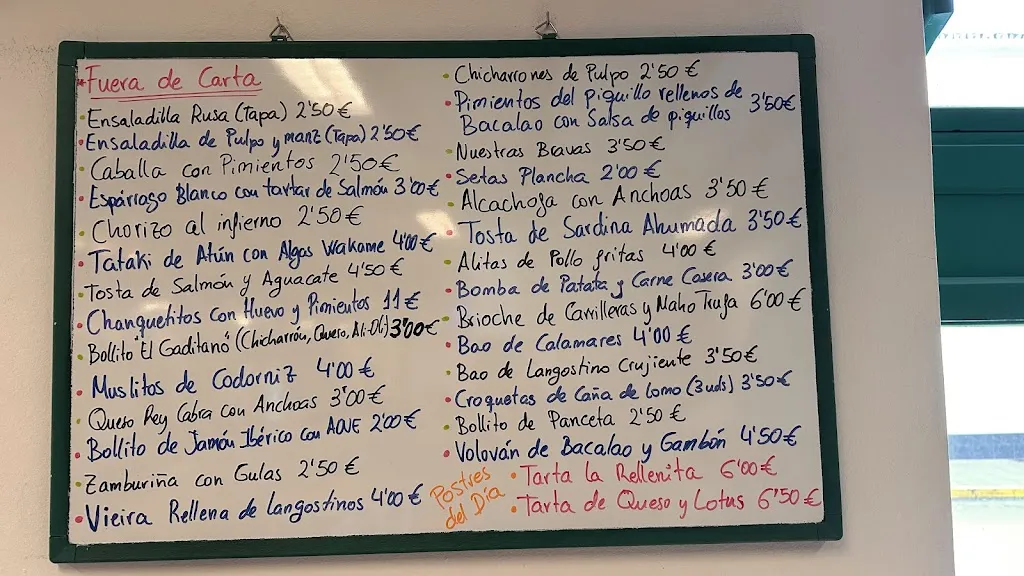 *Fuera de Carta
• Ensaladilla Rusa (Tapa) 2'50 €
• Ensaladilla de Pulpo y maíz (Tapa) 2'50 €
• Caballa con Pimientos 2'50 €
• Espárrago Blanco con tartar de Salmón 3'00 €
• Chorizo al infierno 2'50 €
• Tataki de Atún con Algas Wakame 4'00 €
• Tosta de Salmón y Aguacate 4'50 €
• Changuetitos con Huevo y Pimientos 11 €
• Bollito "El Gaditano" (Chicharrón, Queso, Ali-Oli) 3'00 €
• Muslitos de Codorniz 4'00 €
• Queso Rey Cabra con Anchoas 3'00 €
• Bollito de Jamón Ibérico con AOVE 2'00 €
• Zamburiña con Gulas 2'50 €
• Vieira Rellena de langostinos 4'00 €
• Chicharrones de Pulpo 2'50 €
• Pimientos del piquillo rellenos de
Bacalao con Salsa de piquillos 3'50 €
• Nuestras Bravas 3'50 €
• Setas Plancha 2'00 €
• Alcachofa con Anchoas 3'50 €
• Tosta de Sardina Ahumada 3'50 €
• Alitas de Pollo fritas 4'00 €
• Bomba de Patata y Carne Casera 3'00 €
• Brioche de Carrilleras y Maho Trufa 6'00 €
• Bao de Calamares 4'00 €
• Bao de Langostino Crujiente 3'50 €
• Croquetas de Caña de lomo (3 uds) 3'50 €
• Bollito de Panceta 2'50 €
• Volován de Bacalao y Gambón 4'50 €
Postres
del Día
• Tarta la Rellenita 6'00 €
• Tarta de Queso y Lotus 6'50 €